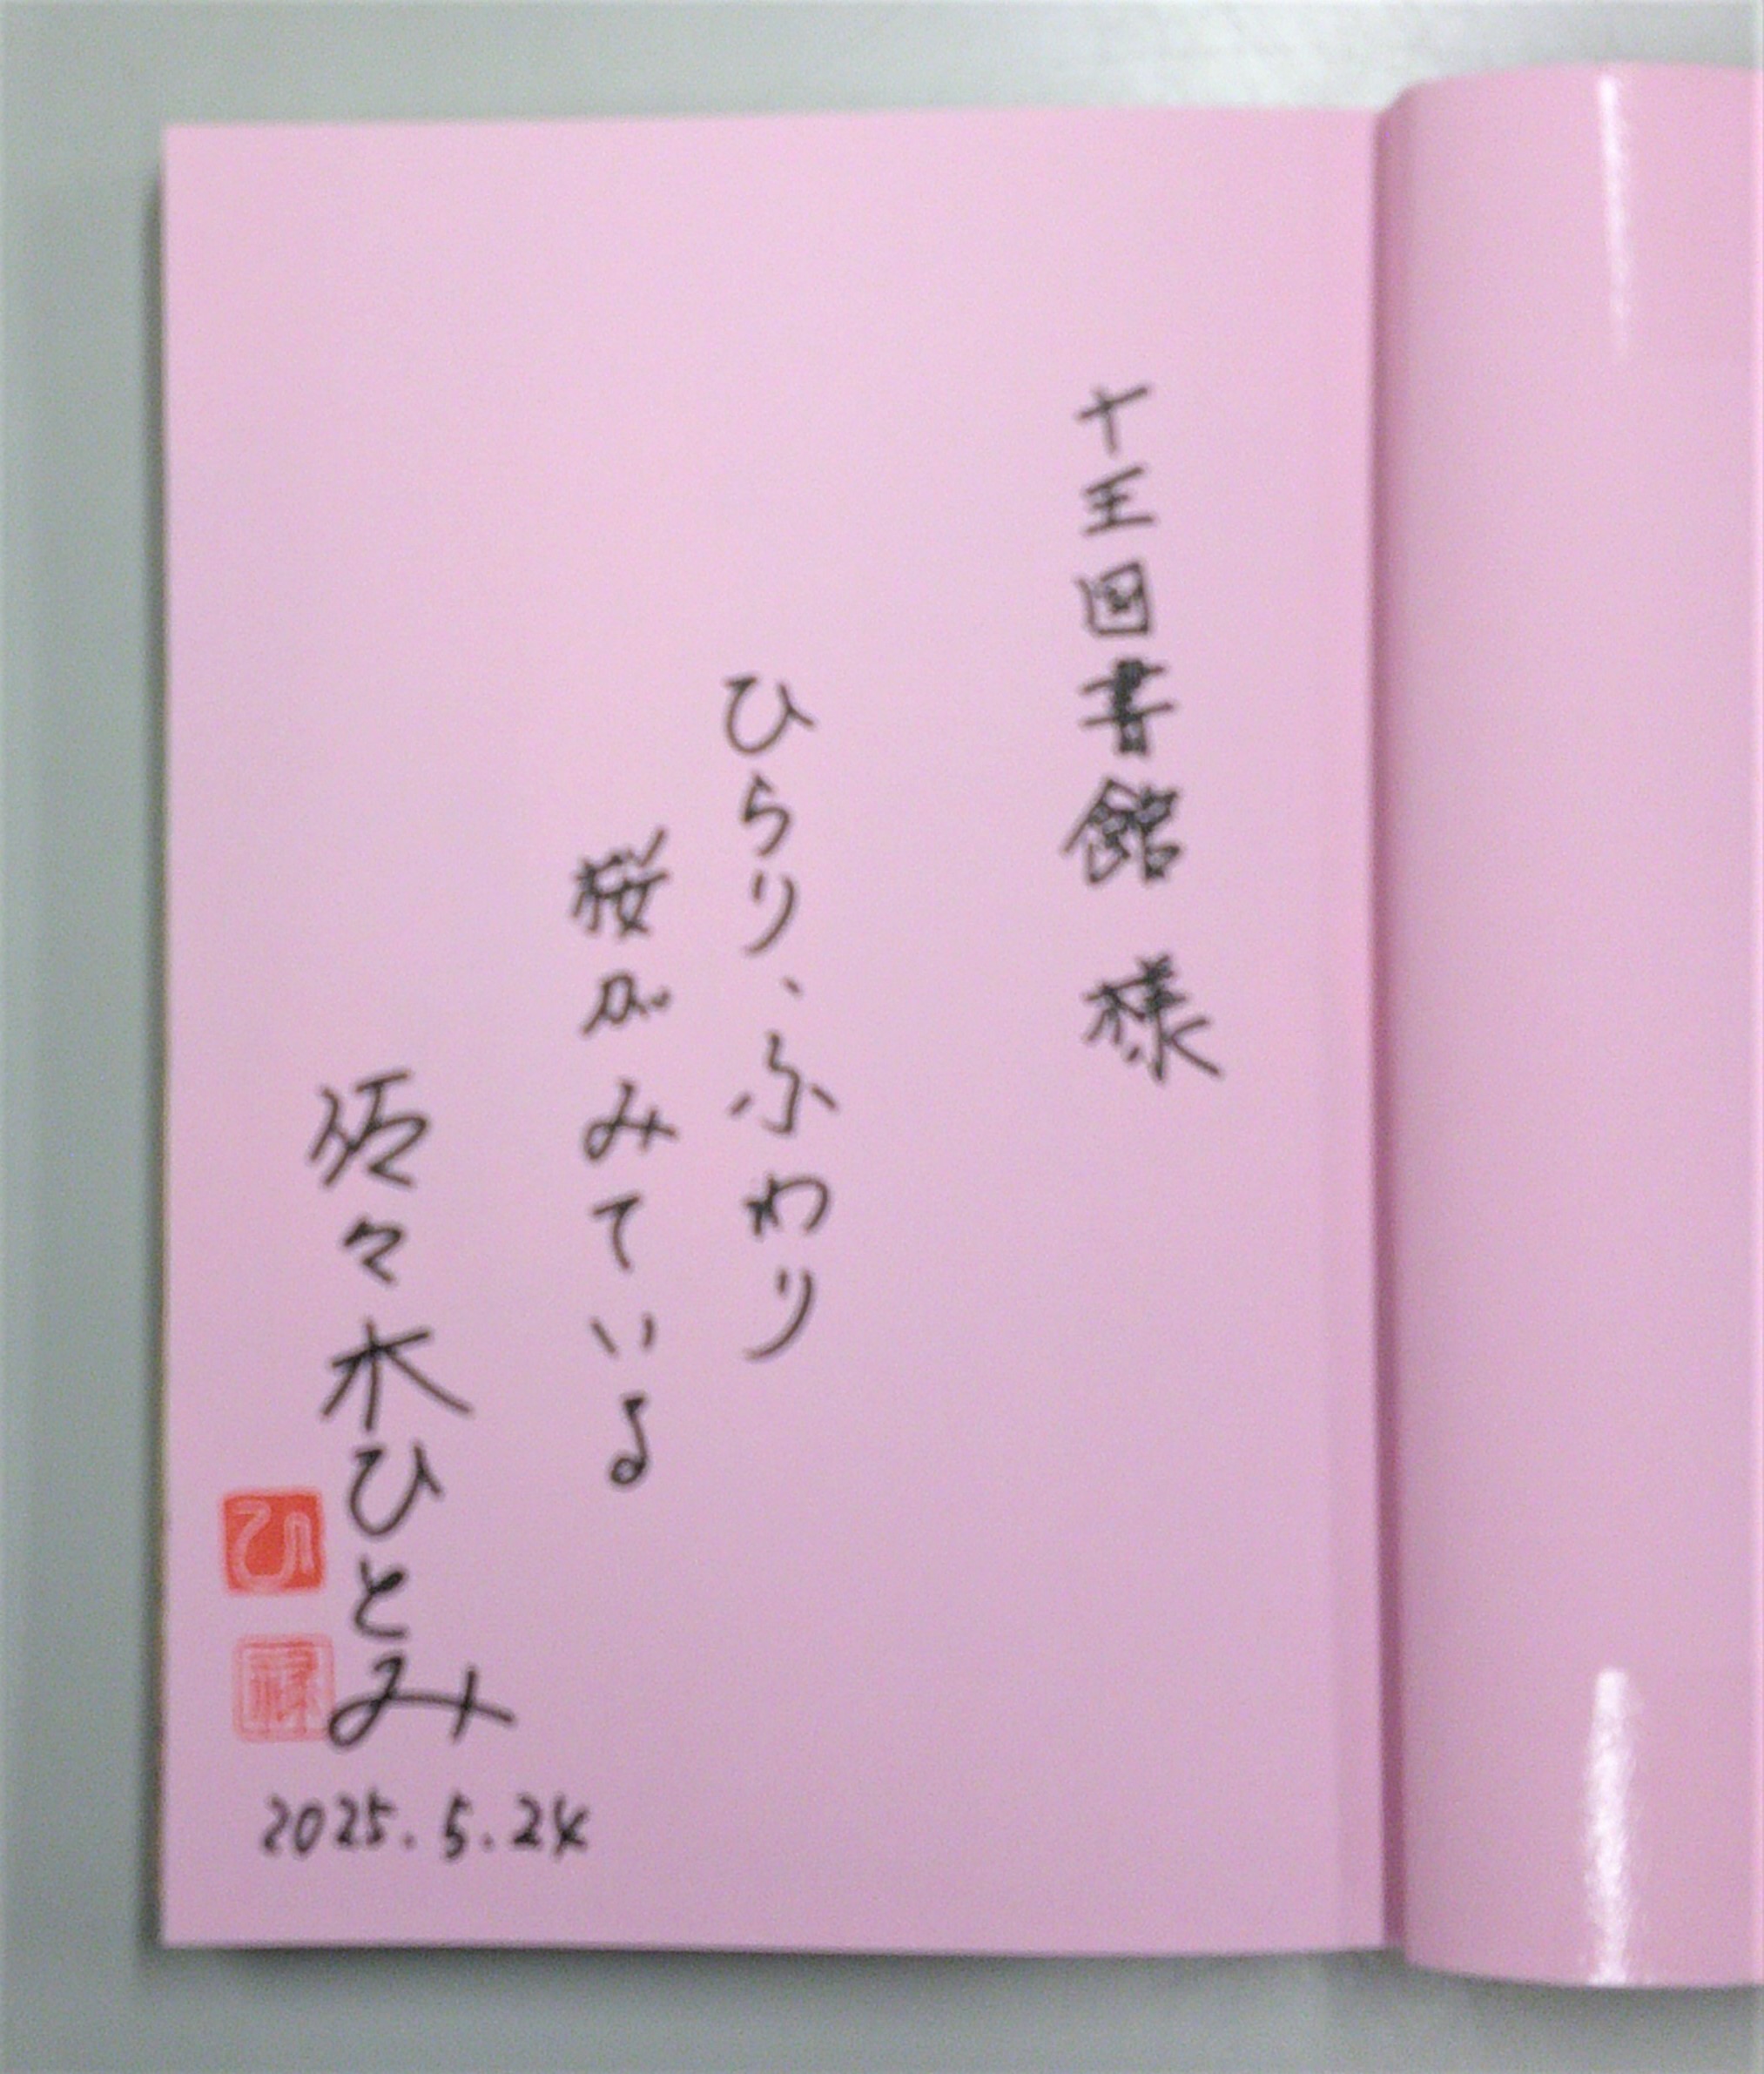 十王図書館 様
ひらり、ふわり
桜がみている
佐々木ひとみ
ひ
2025.5.24